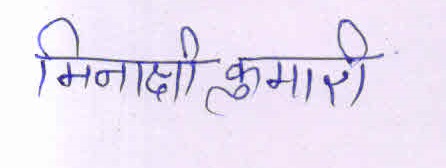 मिनाक्षी कुमारी